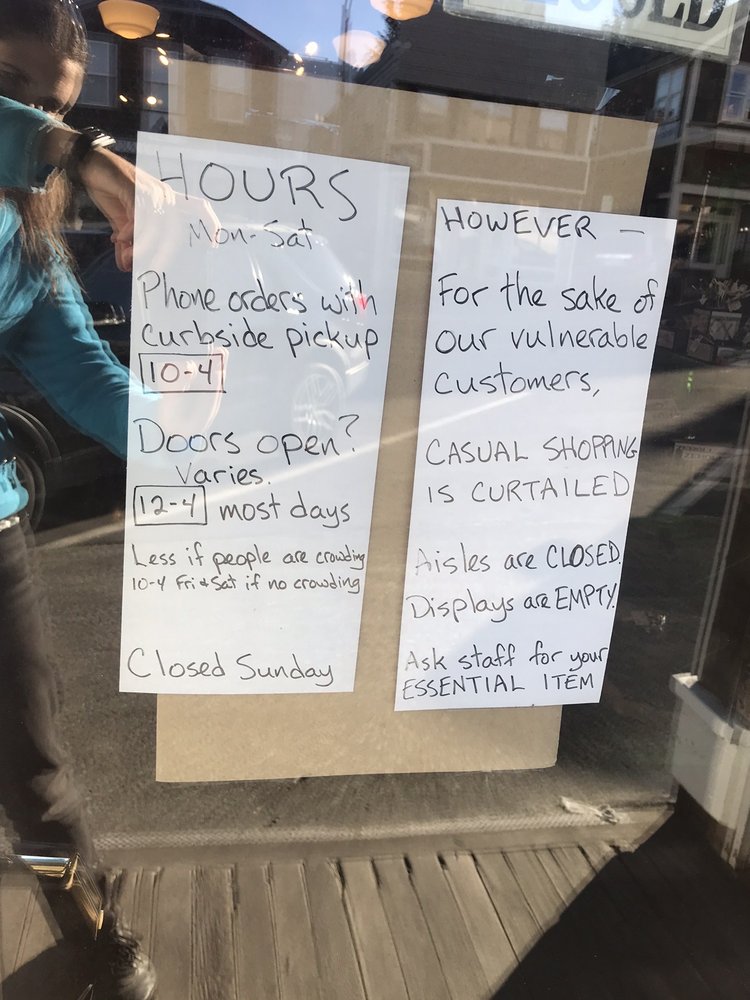 HOURS
Mon-Sat
Phone orders with
Curbside pickup
10-4
Doors open?
Varies.
12-4 most days
Less if people are crowding
10-4 Fri & Sat if no crowding
Closed Sunday
HOWEVER —
For the sake of
our vulnerable
customers,
CASUAL SHOPPING
IS CURTAILED
Aisles are CLOSED.
Displays are EMPTY.
Ask staff for your
ESSENTIAL ITEM